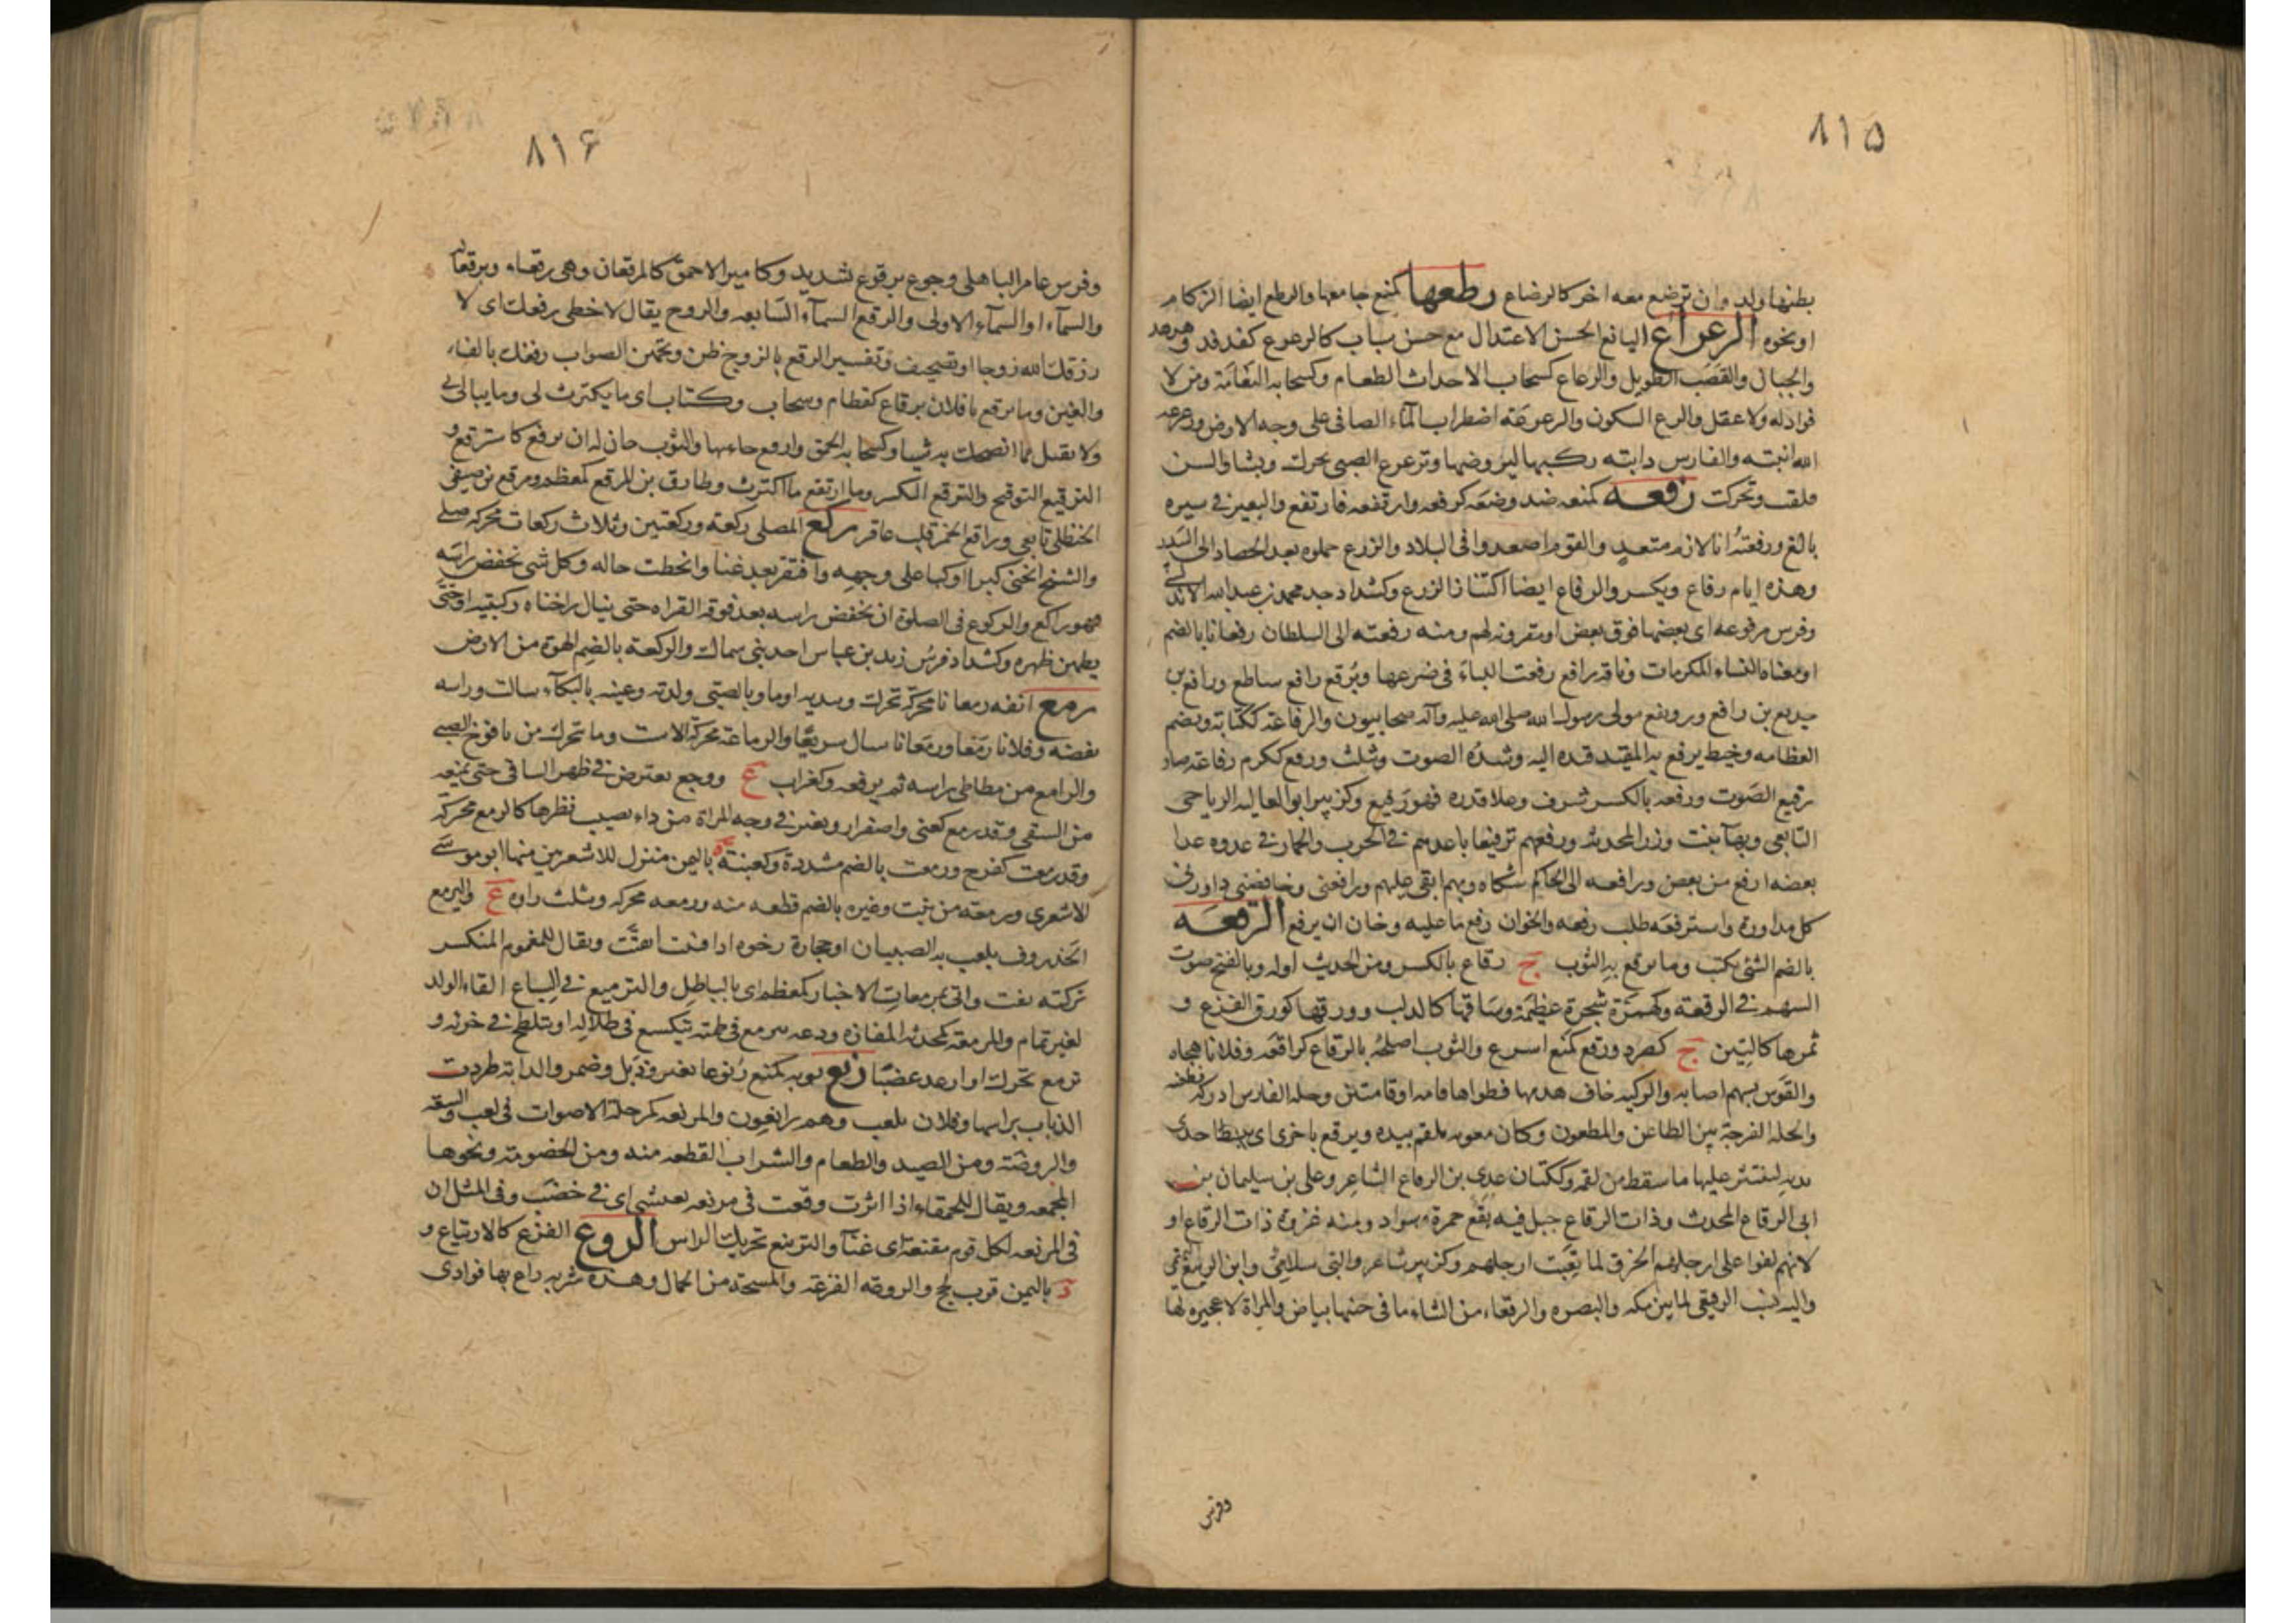 ۸۱۵
بطنها ولد وان ترضع معه اخر كالرضاع رطعها كمنع جامعها والرطع ايضا الزكام
او نحوه الرعراع اليافع الحسن الاعتدال مع حسن شباب كالرعرع كفدفد وهدهد
والجبال والقصب الطويل والرعاع كسحاب الاحداث الطغام وكسحابه النعامة ومن لا
فواد له ولا عقل والرع السكون والرعرعة اضطراب الماء الصافى على وجه الارض ورعرعه
الله انبته والفارس دابته ركبها ليروضها وترعرع الصبى تحرك ونشا والسن
قلقت وتحركت رفعه كمنعه ضد وضعه كرفعه وارتفعه فارتفع والبعير فى سيره
بالغ ورفعته انا لازم متعد والقوم اصعدوا فى البلاد والزرع حملوه بعد الحصاد الى البيدر
وهذه ايام رفاع ويكسر والرفاع ايضا اكتناز الزرع وكشداد جد محمد بن عبد الله
وفرس مرفوعه اى بعضها فوق بعض او مقربه لهم ومنه رفعته الى السلطان رفعانا بالضم
او معناه النساء المكرمات وناقة رافع رفعت اللباء فى ضرعها وبرق رافع ساطع ورافع بن
خديج بن رافع ورويفع مولى رسول الله صلى الله عليه وآله صحابيون والرفاعة ككتابة ويضم
العظامه وخيط يرفع به المقيد قيده اليه وشدة الصوت ويثلث ورفع ككرم رفاعة صار
رفيع الصوت ورفعه بالكسر شرف وعلا قدره فهو رفيع وكزبير ابو العاليه الرياحى
التابعى وبهاء بنت وزر المحدثه ورفعهم ترفيعا باعدهم فى الحرب والحمار فى عدوه عدا
بعضه ارفع من بعض ورافعه الى الحاكم شكاه وبهم ابقى عليهم ورافعنى وخافضنى داورنى
كل مداورة واسترفعه طلب رفعه والخوان رفع ما عليه وحان ان يرفع الرقعه
بالضم الشئى يكتب وما يرقع به الثوب ج رقاع بالكسر ومن الحديث اوله وبالفتح صوت
السهم فى الرقعة وكهمزة شجرة عظيمة وساقها كالدلب وورقها كورق القرع و
ثمرها كالتين ج كصرد ورقع كمنع اسرع والثوب اصلحه بالرقاع كرقعه وفلانا هجاه
والقوس بسهم اصابه والركيه خاف هدمها فطواها قامه او قامتين وحله الفارس ادركه فطعنه
والحله الفرجة بين الطاعن والمطعون وكان معويه يلقم بيده ويرقع باخرى اى يبسط احدى
يديه لينتثر عليها ما سقط من لقمه وككتاب عدى بن الرقاع الشاعر وعلى بن سليمان بن
ابى الرقاع المحدث وذات الرقاع جبل فيه بقع حمرة وسواد ومنه غزوة ذات الرقاع او
لانهم لفوا على ارجلهم الخرق لما نقبت ارجلهم وكزبير شاعر والبى سلامى وابن الربيع تميمى
واليه نسب الرقيعى لما بين مكه والبصره والرقعاء من الشاء ما فى جنبها بياض والمراة لا عجيزه لها
وفرس
۸۱۶
وفرس عامر الباهلى وجوع يرقوع شديد وكامير الاحمق كالمرقعان وهى رقعاء ومرقعانه
والسماء او السماء الاولى والرقع السماء السابعه والزوج يقال لا حظى رقعك اى لا
رزقك الله زوجا او تصحيف وتفسير الرقع بالزوج ظن وتخمين الصواب رفغك بالفاء
والغين وما يرتقع يا فلان برقاع كقطام وسحاب وكتاب اى ما يكترث لى وما يبالى بى
ولا يقبل مما انصحك به شيا وكسحابه الحمق وارقع جاء بها والثوب حان له ان يرقع كاسترقع و
الترقيع الترقيح والترقع التكسب وما ارتقع ما اكترث وطارق بن المرقع كمعظم ومرقع بن صيفى
الحنظلى تابعى وراقع الخمر قلب عاقر ركع المصلى ركعة وركعتين وثلاث ركعات محركه صلى
والشيخ انحنى كبرا او كبا على وجهه وافتقر بعد غنا وانحطت حاله وكل شى يخفض راسه
فهو راكع والركوع فى الصلوة ان يخفض راسه بعد قومة القراه حتى ينال راحتاه ركبتيه او حتى
يطمئن ظهره وكشداد فرس زيد بن عباس احد بنى سماك والركعة بالضم الهوة من الارض
رمع انفه رمعانا محركة تحرك وبيديه اوما وبالصبى ولدته وعينه بالبكاء سالت وراسه
نفضه وفلانا رمعا ورمعانا سال سريعا والرماعة محركة الاست وما تحرك من يافوخ الصبى
والرامع من مطاطى راسه ثم يرفعه وكغراب ع ووجع يعترض فى ظهر الساقى حتى يمنعه
من السقى وقد رمع كعنى واصفرار وتغير فى وجه المراة من داء يصيب بظرها كالرمع محركة
وقد رمعت كفرح ورمعت بالضم مشددة وكعنبة ة باليمن منزل للاشعريين منها ابو موسى
الاشعرى ورمعة من نبت وغيره بالضم قطعه منه ورمعه محركه ويثلث راوه ع واليرمع
الخذروف يلعب به الصبيان او حجارة رخوه اذا فتت انفتت ويقال للمغموم المنكسر
تركته يفت واتى بمرمعات الاخبار كمعظم اى بالباطل والترميع فى السباع القاء الولد
لغير تمام والمرمعة كمحدثه المفازه ودعه يترمع فى طمته يتكسع فى ضلاله او يتلطخ فى خرئه و
ترمع تحرك او ارعد غضبا رنع لونه كمنع رنوعا تغير وذبل وضمر والدابة طردت
الذباب براسها وفلان يلعب وهم رانعون والمرنعه كمرحلة الاصوات فى لعب والسعة
والروضة ومن الصيد والطعام والشراب القطعه منه ومن الخصومة ونحوها
المجمعه ويقال للحمقاء اذا اثرت وقعت فى مرنعه فعيشى اى فى خصب وفى المثل ان
فى المرنعه لكل قوم مقنعة اى غناء والترنيع تحريك الراس الروع الفزع كالارتياع و
د باليمن قرب لحج والروعه الفزعة والمسحة من الجمال وهذه شربه راع بها فوادى